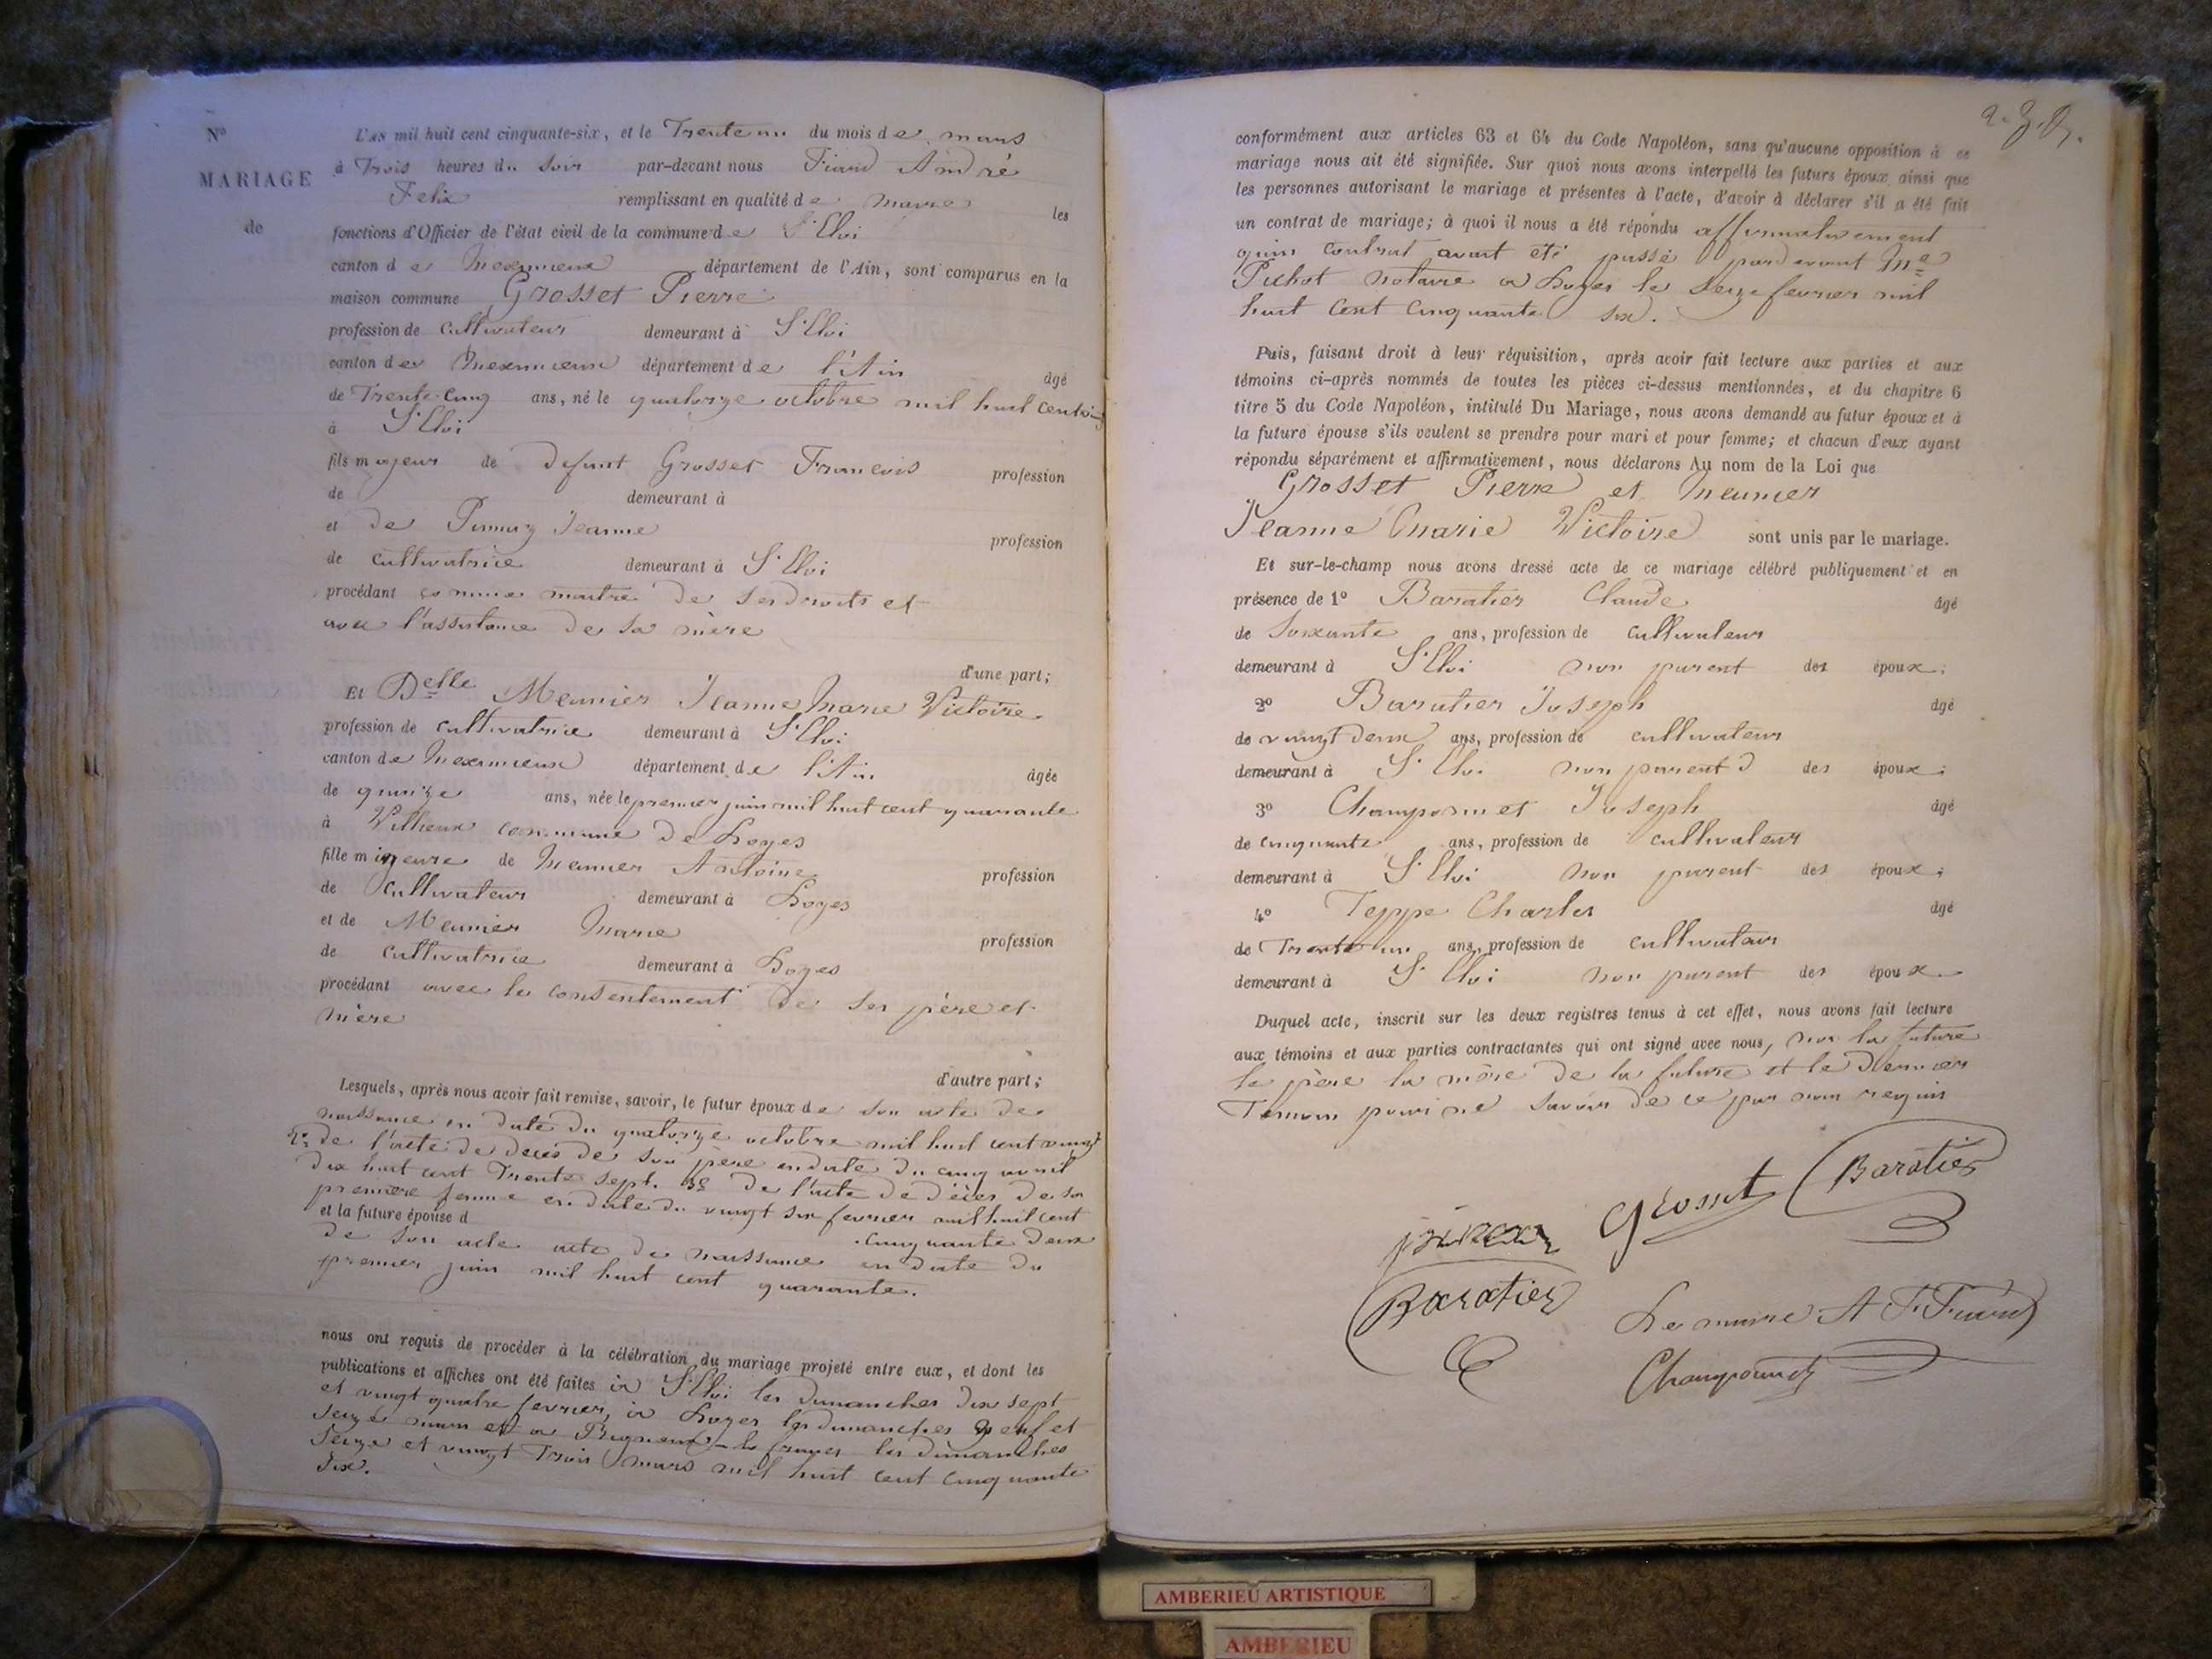 N°
MARIAGE
de
L'an mil huit cent cinquante-six, et le Trente un du mois de mars
à Trois heures du Soir par-devant nous Fiard André
Felix remplissant en qualité de maire les
fonctions d'Officier de l'état civil de la commune de St Eloi
canton de Meximieux département de l'Ain, sont comparus en la
maison commune Grosset Pierre
profession de cultivateur demeurant à St Eloi
canton de Meximieux département de l'Ain âgé
de Trente Cinq ans, né le quatorze octobre mil huit cent
à St Eloi
fils majeur de defunt Grosset Francois profession
de demeurant à
et de Jeanne profession
de cultivatrice demeurant à St Eloi
procédant comme maitre de ses droits et
avec l'assistance de sa mère
d'une part;
Et Delle Meunier Jeanne Marie Victoire
profession de cultivatrice demeurant à St Eloi
canton de Meximieux département de l'Ain âgée
de quinze ans, née le premier juin mil huit cent quarante
à Villieux commune de Loyes
fille mineure de Meunier Antoine profession
de cultivateur demeurant à Loyes
et de Meunier Marie profession
de cultivatrice demeurant à Loyes
procédant avec le consentement de ses père et
mère
d'autre part;
Lesquels, après nous avoir fait remise, savoir, le futur époux de son acte de
naissance en date du quatorze octobre mil huit cent vingt
2° de l'acte de deces de son père en date du cinq avril
dix huit cent Trente sept. 3° de l'acte de décès de sa
premiere femme en date du vingt six fevrier mil huit cent
et la future épouse d cinquante deux
de son acte acte de naissance en date du
premier juin mil huit cent quarante.
nous ont requis de procéder à la célébration du mariage projeté entre eux, et dont les
publications et affiches ont été faites à St Eloi les dimanches dix sept
et vingt quatre fevrier, à Loyes les dimanches neuf et
seize mars et a les dimanches
seize et vingt Trois mars mil huit cent cinquante
six.
conformément aux articles 63 et 64 du Code Napoléon, sans qu'aucune opposition à ce
mariage nous ait été signifiée. Sur quoi nous avons interpellé les futurs époux ainsi que
les personnes autorisant le mariage et présentes à l'acte, d'avoir à déclarer s'il a été fait
un contrat de mariage; à quoi il nous a été répondu affirmativement
quun contrat avait été passé pardevant Me
Pichot notaire a Loyes le seize fevrier mil
huit cent cinquante six.
Puis, faisant droit à leur réquisition, après avoir fait lecture aux parties et aux
témoins ci-après nommés de toutes les pièces ci-dessus mentionnées, et du chapitre 6
titre 5 du Code Napoléon, intitulé Du Mariage, nous avons demandé au futur époux et à
la future épouse s'ils veulent se prendre pour mari et pour femme; et chacun d'eux ayant
répondu séparément et affirmativement, nous déclarons Au nom de la Loi que
Grosset Pierre et Meunier
Jeanne Marie Victoire sont unis par le mariage.
Et sur-le-champ nous avons dressé acte de ce mariage célébré publiquement et en
présence de 1° Baratier Claude âgé
de Soixante ans, profession de cultivateur
demeurant à St Eloi non parent des époux;
2° Baratier Joseph âgé
de vingt deux ans, profession de cultivateur
demeurant à St Eloi non parent des époux;
3° Champomet Joseph âgé
de cinquante ans, profession de cultivateur
demeurant à St Eloi non parent des époux;
4° Teppe Charles âgé
de Trente un ans, profession de cultivateur
demeurant à St Eloi non parent des époux.
Duquel acte, inscrit sur les deux registres tenus à cet effet, nous avons fait lecture
aux témoins et aux parties contractantes qui ont signé avec nous, non la future
le père la mère de la future et le dernier
Témoin pour ne savoir de ce par nous requis
Grosset Baratier
Baratier Le maire A F Fiard
Champomet
AMBERIEU ARTISTIQUE
AMBERIEU